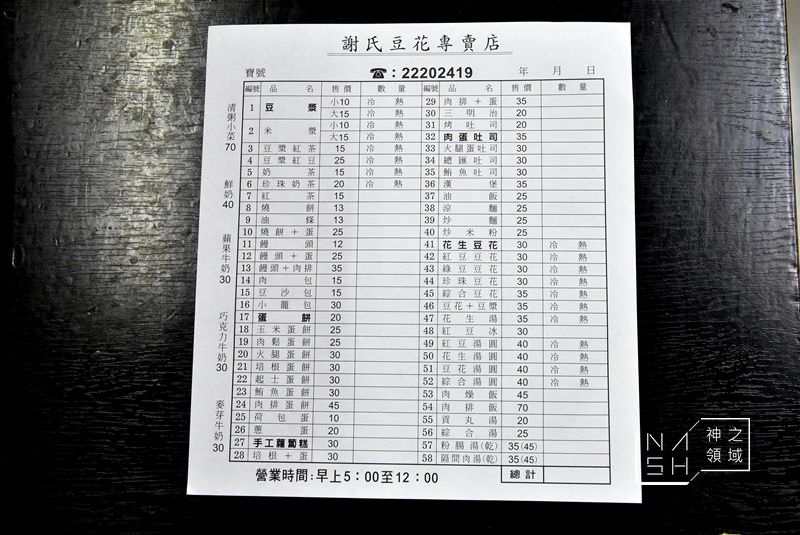 謝氏豆花專賣店
寶號 ☎:22202419 年 月 日
編號 品名 售價 數量 編號 品名 售價 數量
1 豆漿 小10 冷 熱
大15 冷 熱
2 米漿 小10 冷 熱
大15 冷 熱
3 豆漿紅茶 15 冷 熱
4 豆漿紅豆 25 冷 熱
5 奶茶 15 冷 熱
6 珍珠奶茶 20 冷 熱
7 紅茶 15
8 燒餅 13
9 油條 13
10 燒餅+蛋 25
11 饅頭 12
12 饅頭+蛋 25
13 饅頭+肉排 35
14 肉包 15
15 豆沙包 15
16 小籠包 30
17 蛋餅 20
18 玉米蛋餅 25
19 肉鬆蛋餅 25
20 火腿蛋餅 30
21 培根蛋餅 30
22 起士蛋餅 30
23 鮪魚蛋餅 30
24 肉排蛋餅 45
25 荷包蛋 10
26 蔥蛋 20
27 手工蘿蔔糕 30
28 培根+蛋 30
29 肉排+蛋 35
30 三明治 20
31 烤吐司 20
32 肉蛋吐司 35
33 火腿蛋吐司 30
34 總匯吐司 30
35 鮪魚吐司 30
36 漢堡 35
37 油飯 25
38 涼麵 25
39 炒麵 25
40 炒米粉 25
41 花生豆花 30 冷 熱
42 紅豆豆花 30 冷 熱
43 綠豆豆花 30 冷 熱
44 珍珠豆花 30 冷 熱
45 綜合豆花 35 冷 熱
46 豆花+豆漿 35 冷 熱
47 花生湯 35 冷 熱
48 紅豆冰 30
49 紅豆湯圓 40 冷 熱
50 花生湯圓 40 冷 熱
51 豆花湯圓 40 冷 熱
52 綜合湯圓 40 冷 熱
53 肉燥飯 45
54 肉排飯 70
55 貢丸湯 20
56 綜合湯 25
57 粉腸湯(乾) 35(45)
58 隔間肉湯(乾) 35(45)
總計
營業時間:早上5:00至12:00
清粥小菜70
鮮奶40
蘋果牛奶30
巧克力牛奶30
麥芽牛奶30
NASH
神之領域